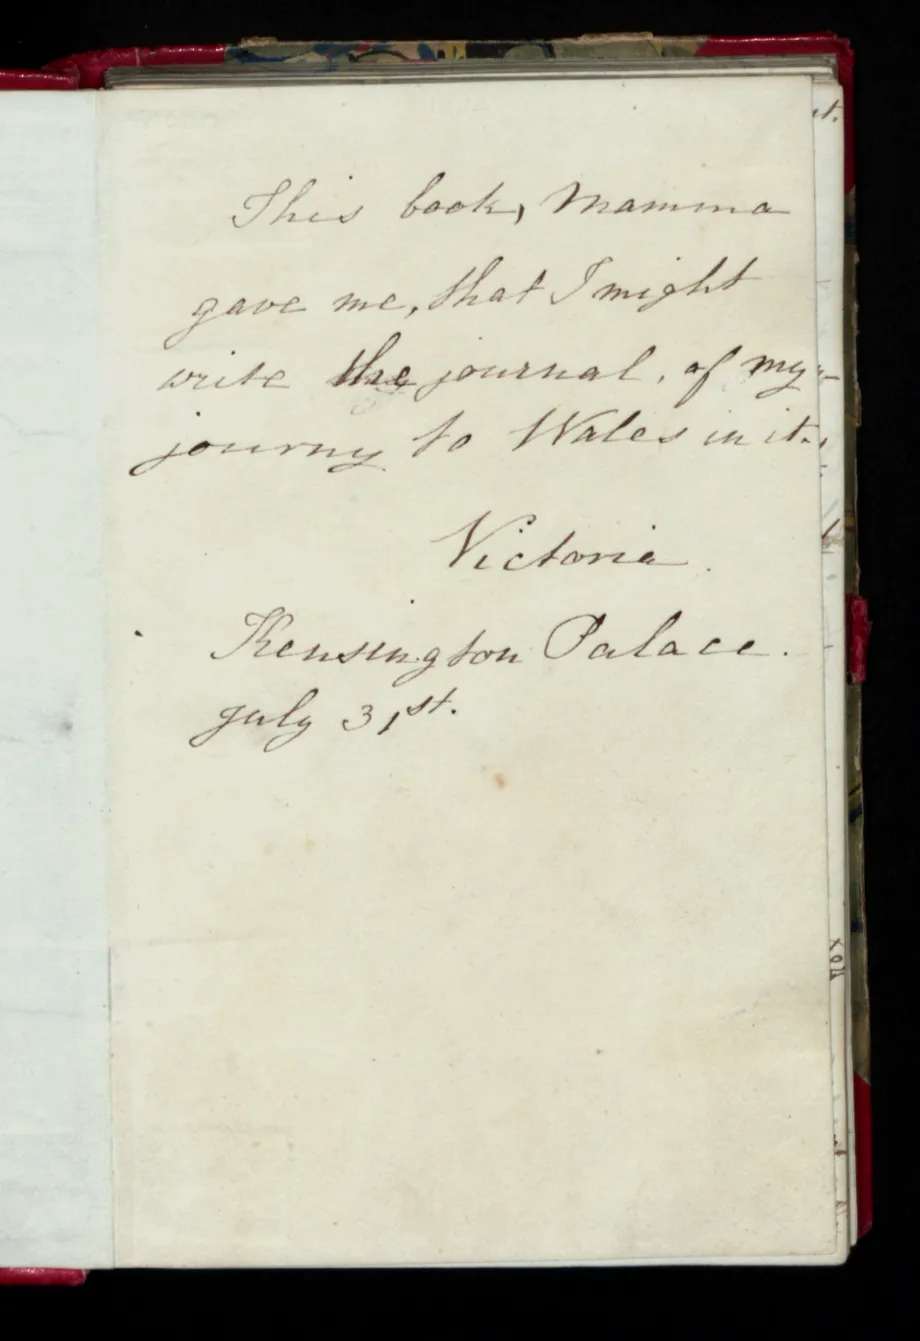 This book, Mamma
gave me, that I might
write the journal, of my
journy to Wales in it.
Victoria.
Kensington Palace.
July 31st.